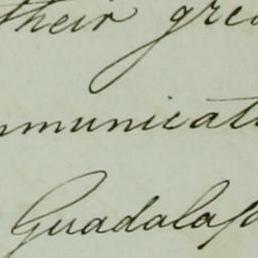 their grea
mmunicati
Guadalap